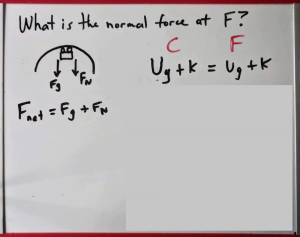 What is the normal force at F?
C F
Ug + K = Ug + K
Fg FN
Fnet = Fg + FN